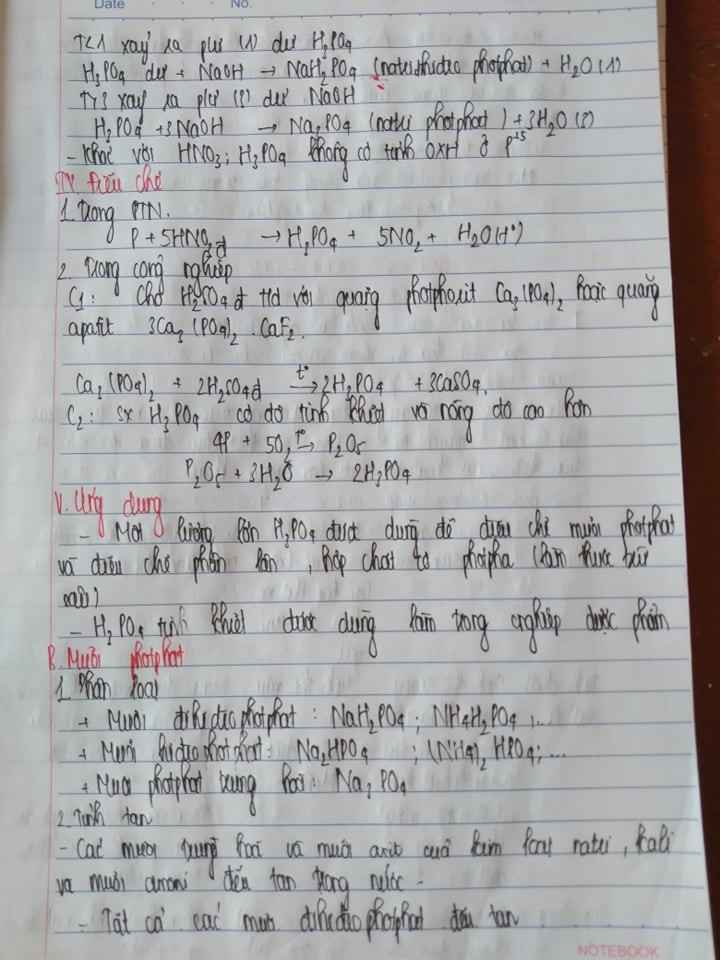 Date No.
T<1 xảy ra pứ (1) dư H3PO4
H3PO4 dư + NaOH → NaH2PO4 (natri đihiđro photphat) + H2O (1)
T>3 xảy ra pứ (3) dư NaOH
H3PO4 + 3NaOH → Na3PO4 (natri photphat) + 3H2O (3)
- Khác với HNO3; H3PO4 không có tính OXH ở P+5
IV. Điều chế
1. Trong PTN.
P + 5HNO3đ → H3PO4 + 5NO2 + H2O (t°)
2. Trong công nghiệp
C1: Cho H2SO4đ td với quặng photphorit Ca3(PO4)2 hoặc quặng
apatit 3Ca3(PO4)2.CaF2.
Ca3(PO4)2 + 2H2SO4đ t°→ 2H3PO4 + 3CaSO4
C2: sx H3PO4 có độ tinh khiết và nồng độ cao hơn
4P + 5O2 t°→ P2O5
P2O5 + 3H2O → 2H3PO4
V. Ứng dụng
- Một lượng lớn H3PO4 được dùng để điều chế muối photphat
và điều chế phân lân, hợp chất cơ photpho (làm thuốc trừ
sâu)
- H3PO4 tinh khiết được dùng làm trong cnghiệp dược phẩm
B. Muối photphat
1. Phân loại
+ Muối đihiđrophotphat: NaH2PO4; NH4H2PO4;...
+ Muối hiđrophotphat: Na2HPO4; (NH4)2HPO4;...
+ Muối photphat trung hoà: Na3PO4
2. Tính tan
- Các muối trung hoà và muối axit của kim loại natri, kali
và muối amoni đều tan trong nước -
- Tất cả các muối đihiđrophotphat đều tan
NOTEBOOK